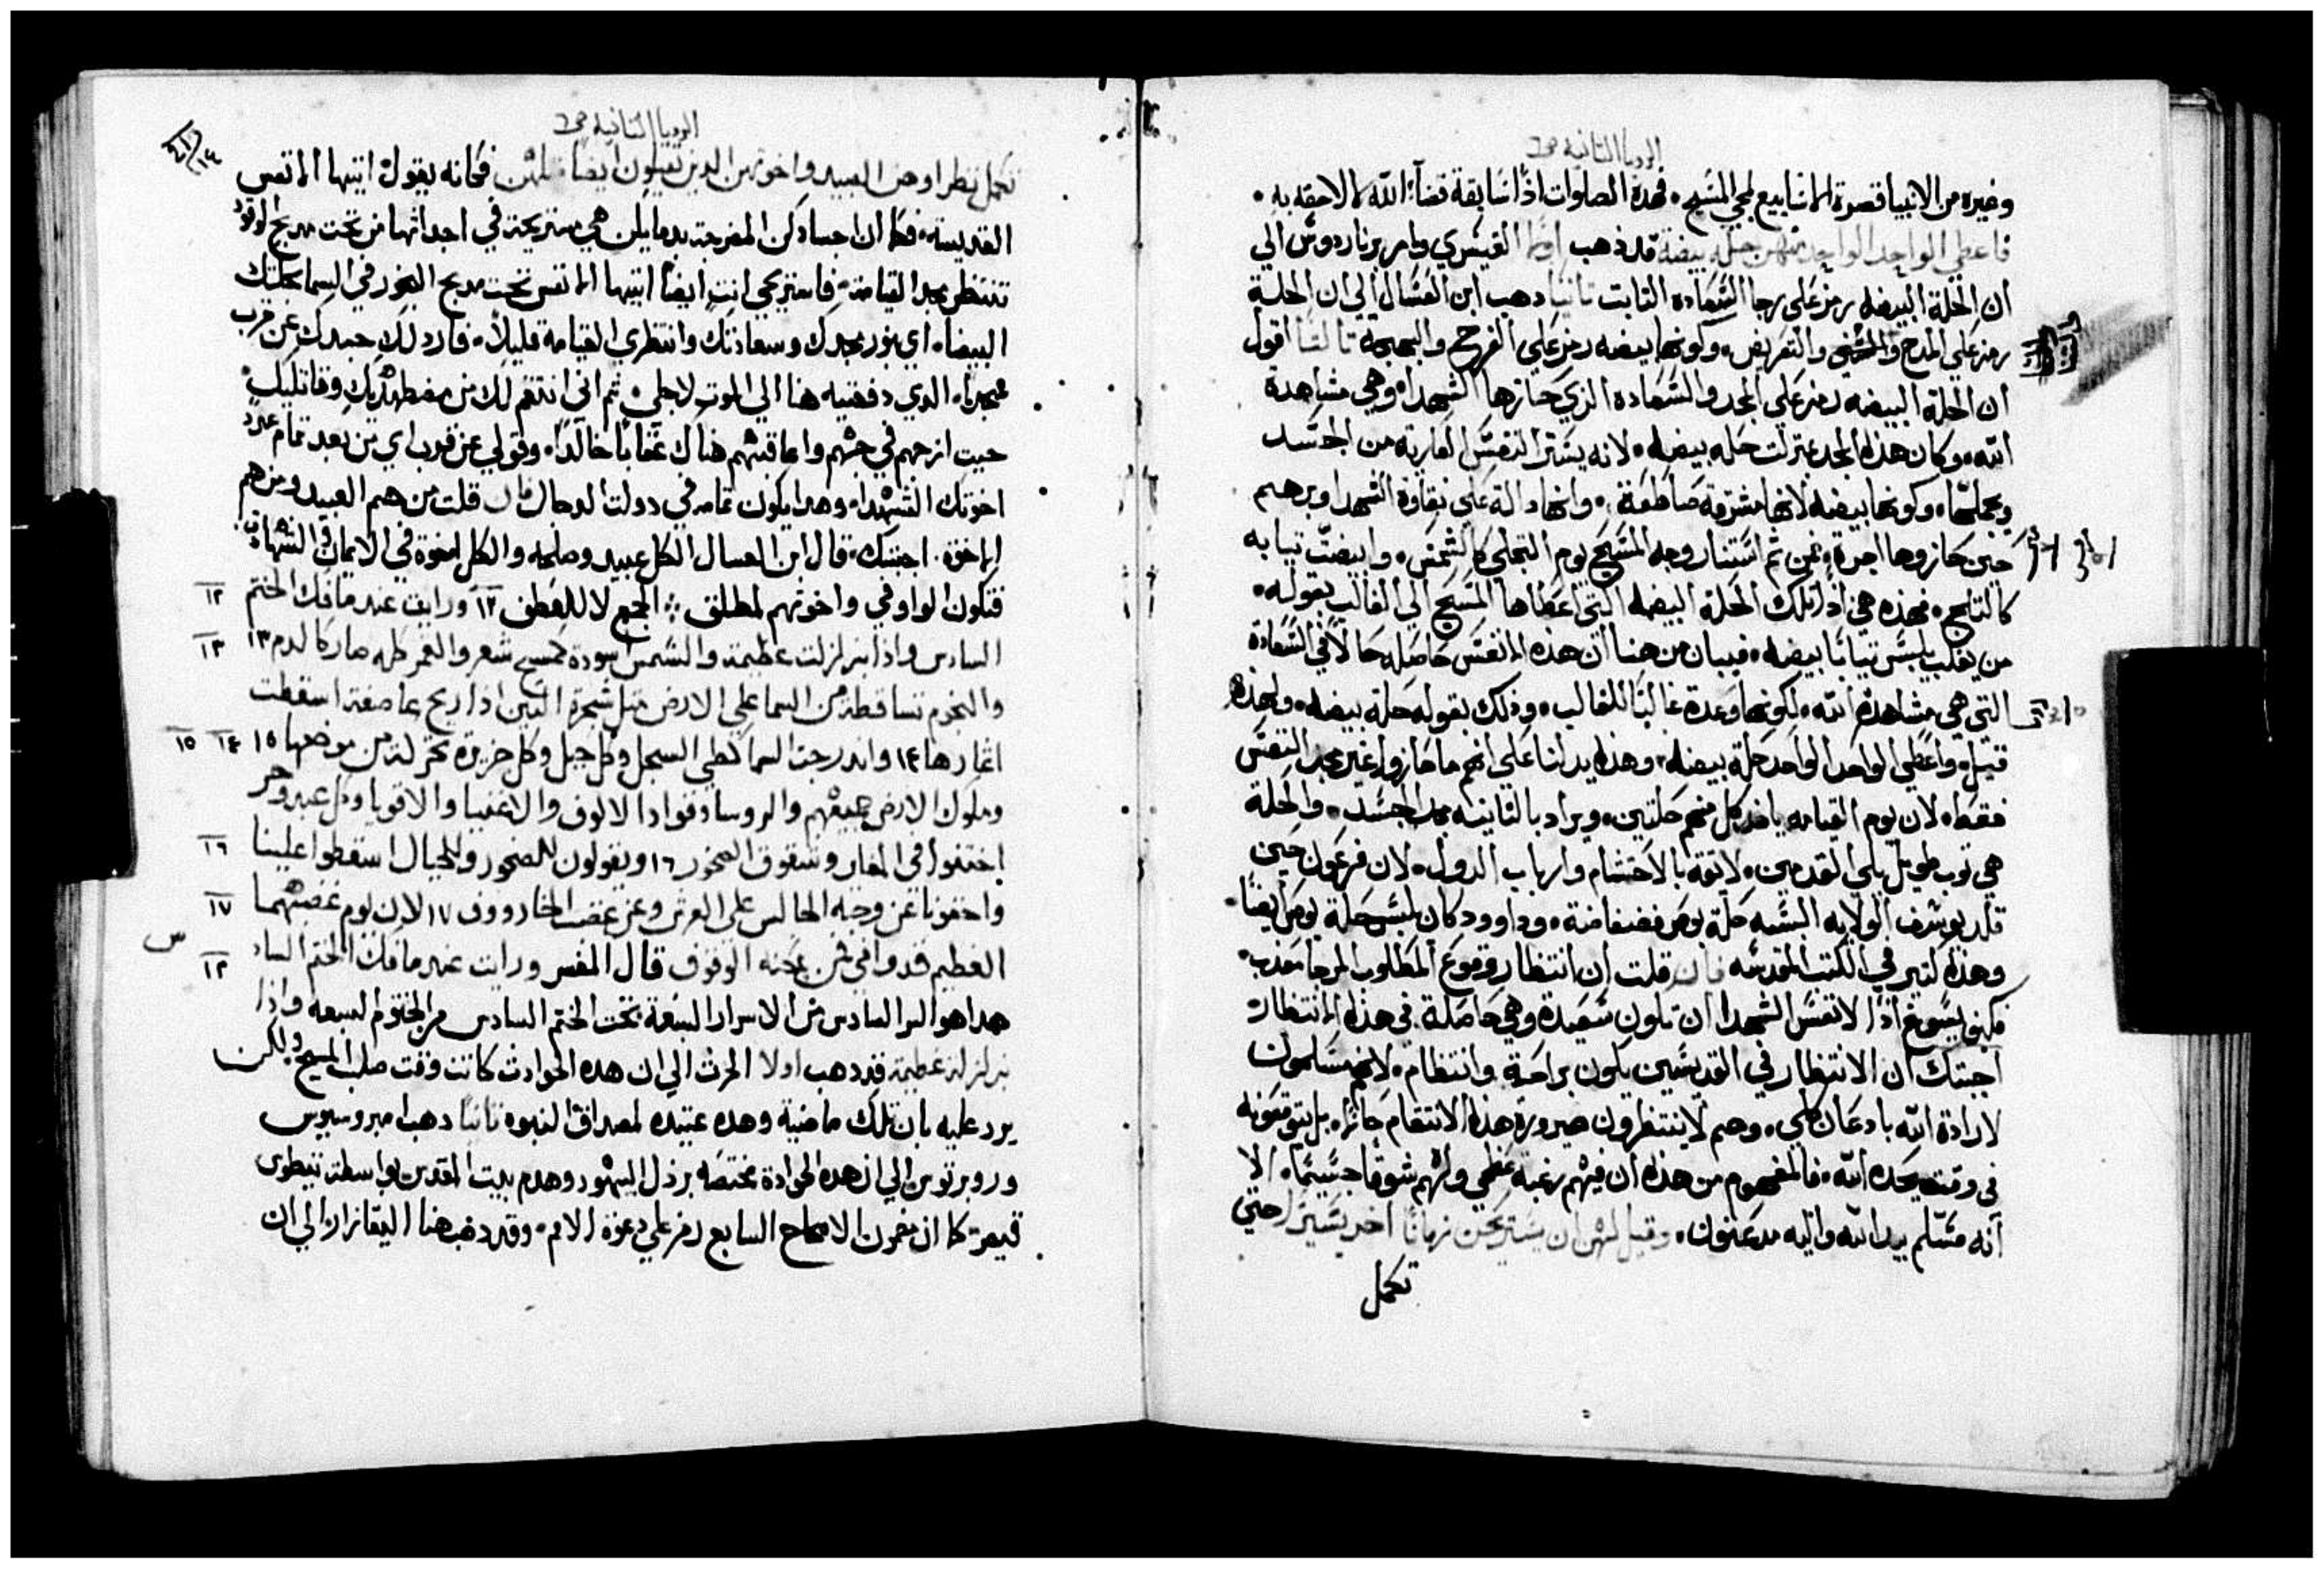 الرويا الثانية ص٦
وغيره من الانبيا قصرة الاسابيع لمجي المسيح • فهذة الصلوات اذًا سابقة قضآ الله لا لاحقه به •
فاعطي الواحد الواحد منهن حله بيضة قد ذهب اولًا القيسري وامبرناردوس الي
ان الحلة البيضه رمز على رجا السعاده الثابت ثانيا دهب ابن العسال الي ان الحلة
رمز علي المدح والتقريض • وكونها بيضه رمز علي الفرح والبهجة ثالثا اقول
ان الحلة البيضه رمز علي المجد والسعاده الذي حازها الشهدا • وهي مشاهدة
الله • وكان هذا المجد بمنزلت حله بيضه • لانه يستر النفس العاريه من الجسد
ويجملها • وكونها بيضه لانها مشرقة صاطعة • وانها دالة علي نقاوة الشهدا وبرهم
حين حازوها اجرة • فمن ثم استنار وجه المسيح يوم التجلي كالشمس • وابيضت تيابه
كالتلج • فهذه هي اذًا تلك الحلة البيضه التي اعطاها المسيح الي الغالب بقوله •
من يغلب يلبس تيابًا بيضه • فيبان من هنا ان هذه الانفس حاصله حالًا في السعادة
التي هي مشاهدة الله • لكونها وعدة غالبًا للغالب • وذلك بقوله حلة بيضه • ولهذه
قيل • واعطي الواحد الواحد حلة بيضه • وهذه يدلنا علي انهم ما حازوا غير مجد النفس
فقط • لان يوم القيامه ياخذ كل منهم حلتين • ويراد بالثانيه مجد الجسد • والحلة
هي توب طويل يلي القدمين • لايقة بالاحتشام وارباب الدول • لان فرعون حين
قلد يوسف الولايه البسه حلة بوص فضفاضة • وداوود كان يلبس حلة بوص ايضًا •
وهذه كتير في الكتب المقدسه فان قلت ان انتظار وقوع المطلوب المرجا معذب •
فكيف يسوغ اذًا لانفس الشهدا ان تكون سعيدة وهي حاصلة في هذه الانتظار
اجبتك ان الانتظار في القديسين يكون براحة وانتظام • لانهم مسلمون
لارادة الله بادعان كلي • وهم لاينتظرون صيرورة هذا الانتقام حالًا • بل يتوقعونه
في وقته يحده الله • فالمفهوم من هذه ان فيهم رغبة عظمي ولهم شوقًا جسيمًا • الا
انه مسلم بيد الله واليه مدعنون • وقيل لهن ان يسترحن زمانًا اخر يسيرًا حتي
تكمل
الرويا الثانية ص٦
تكمل نظراوهن العبيد واخوتهن الدين يقتلون ايضا مثلهن فكانه يقول ايتها الانفس
القديسة • فكما ان اجسادكن المضرجة بدمايكن هي مستريحة في اجداثها من تحت مدبح الوقود
تنتظر مجد القيامة • فاستريحي انتِ ايضا ايتها الانفس تحت مدبح البخور في السما بحلتك
البيضا • اي بنور مجدك وسعادتك وانتظري القيامة قليلًا • فارد لكِ جسدك عن قرب
ممجدًا • الدي دفعتيه هنا الي الموت لاجلي • ثم اني انتقم لك من مضطهديك وقاتليك
حيت ازجهم في جهنم واعاقبهم هناك عقابًا خالدًا • وقولي عن قرب اي من بعد تمام عدد
اخوتك الشهدا • وهدا يكون تمامه في دولت الدجال فان قلت من هم العبيد ومن هم
الاخوة • اجبتك • قال ابن العسال الكل عبيد وصلحه والكل اخوة في الايمان والشهادة
فتكون الواو في واخوتهم لمطلق الجمع لا للعطف ١٢ ورايت عندما فك الختم
السادس واذا بزلزلت عظيمة والشمس سودة كمسح شعر والقمر كله صار كالدم ١٣
والنجوم تساقطة من السما على الارض مثل شجرة التين اذا ريح عاصفة اسقطت
اثمارها ١٤ واندرجت السما كطي السجل وكل جبل وكل جزيرة تحركة من موضعها ١٥
وملوك الارض جميعهم والروسا وقوادا الالوف والاغنيا والاقويا وكل عبد وحر
اختفوا في المغاير وشقوق الصخور ١٦ ويقولون للصخور وللجبال اسقطوا علينا
واخفونا عن وجه الجالس على العرش وعن غضب الخاروف ١٧ لان يوم غضبهما
العظيم قد وافى فمن يمكنه الوقوف قال المفسر ورايت عندما فك الختم الساد
هدا هو السر السادس من الاسرار السبعة تحت الختم السادس من الختوم السبعه واذا
بزلزلة عظيمة فقد دهب اولا الحرث الي ان هده الحوادث كانت وقت صلب المسيح • ولكن
يرد عليه بان تلك ماضية وهده عتيده لمصداق النبوه ثانيًا دهب امبروسيوس
وروبرتوس الي ان هده الحوادة مختصة برذل اليهود وهدم بيت المقدس بواسطة تيطوس
قيصر كما ان مضمون الاصحاح السابع رمز علي دعوة الامم • وقد دهب هنا اليقازار الي ان
١٢
١٣
١٤ ١٥
١٦
١٧
س
١٢